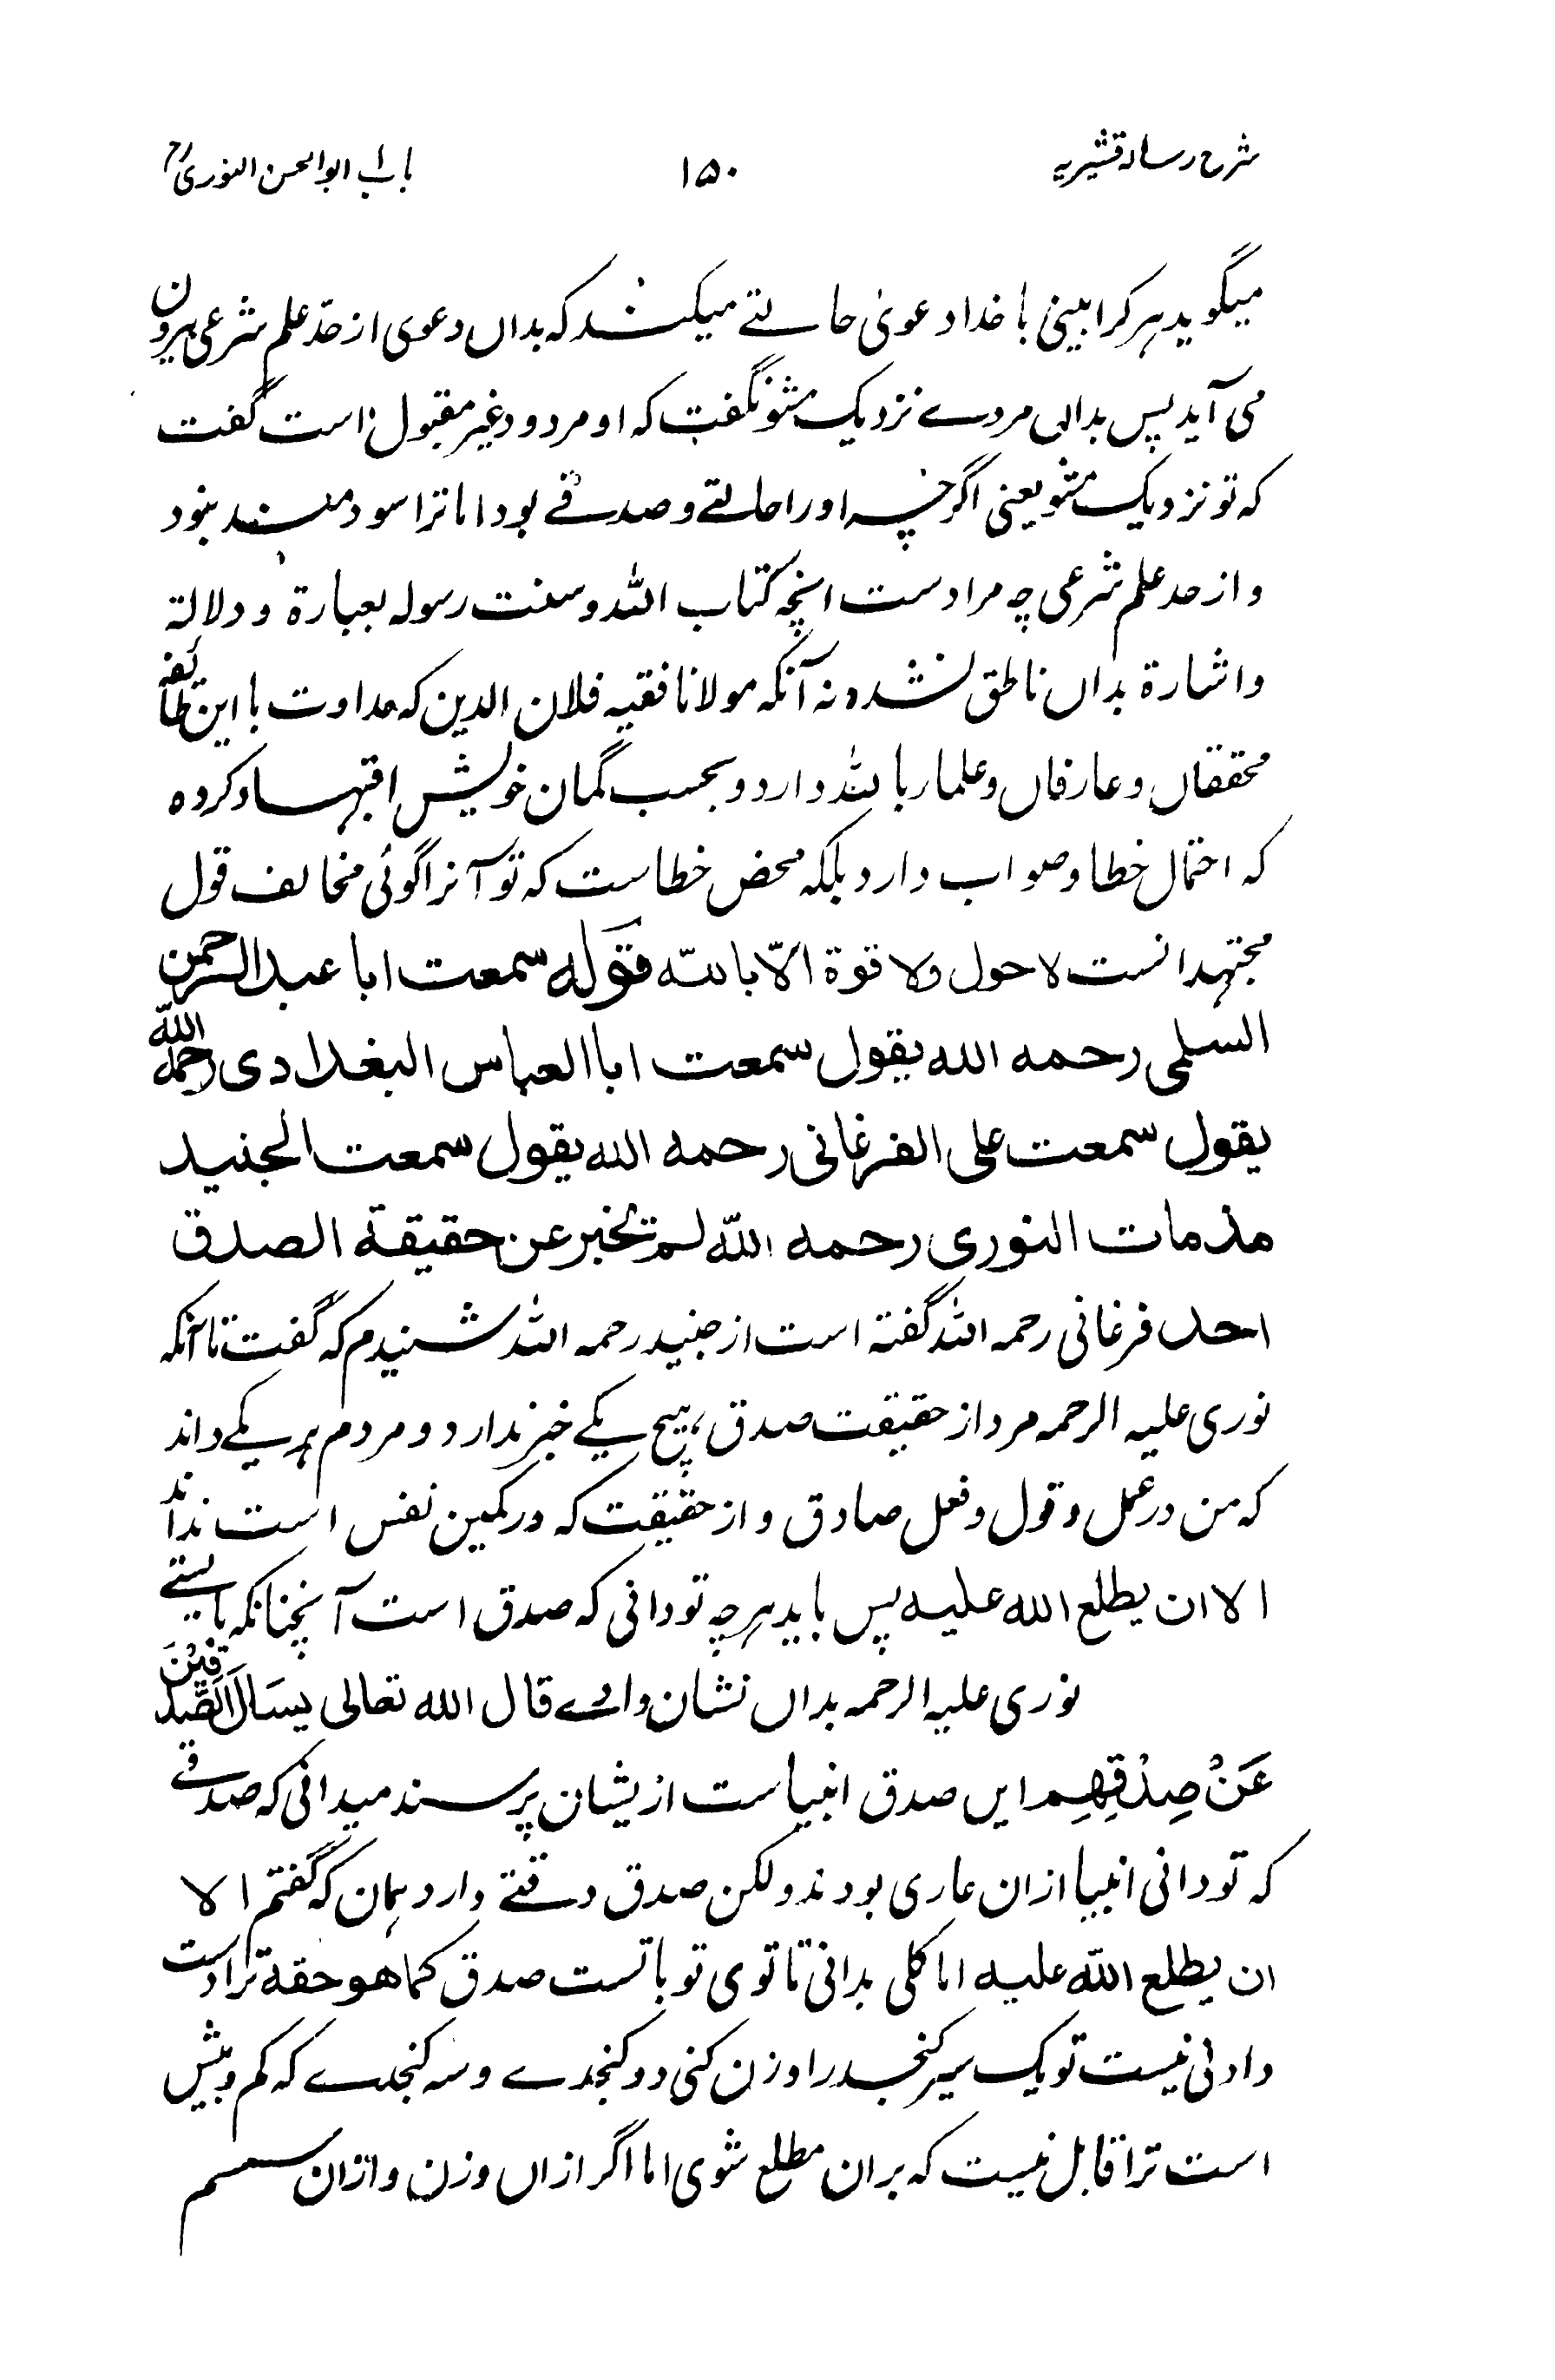 شرح رسالہ قشیریہ ۱۵۰ باب ابوالحسن النوری رح
میگوید ہر کرا بینی با خدا دعویٰ حالتے میکند کہ بداں دعوی از حد علم شرعی بیرون
می آید پس بدانی مردے نزدیک مشو نگفت کہ او مردود غیر مقبول است گفت
کہ تو نزدیک مشو یعنی اگرچہ او را حالتے و صدقے بود اما ترا سودمند نبود
و از حد علم شرعی چہ مرادست انچہ کتاب اللہ و سنت رسولہ بعبارۃ و دلالۃ
و اشارۃ بداں ناطق نشدہ نہ آنکہ مولانا فقیہ فلان الدین کہ عداوت با این طائفہ
محققاں و عارفاں و علمار باللہ دارد و بحسب گمان خویش اجتہاد کردہ
کہ احتمال خطا و صواب دارد بلکہ محض خطاست کہ تو آنرا گوئی مخالف قول
مجتہدانست لاحول ولا قوۃ الّا باللہ قولہ سمعت ابا عبدالرحمن
السلمی رحمہ اللہ یقول سمعت ابا العباس البغدادی رحمہ اللہ
یقول سمعت علی الفرغانی رحمہ اللہ یقول سمعت الجنید
مذ مات النوری رحمہ اللہ لم یخبر عن حقیقۃ الصدق
احد فرغانی رحمہ اللہ گفتہ است از جنید رحمہ اللہ شنیدم کہ گفت تا آنکہ
نوری علیہ الرحمہ مرد از حقیقت صدق ہیچ یکے خبر ندارد و مردم ہر یکے داند
کہ من در عمل و قول و فعل صادق و از حقیقت کہ در کمین نفس است نداند
الا ان یطلع اللہ علیہ پس باید ہرچہ تو دانی کہ صدق است آنچنانکہ بایستے
نوری علیہ الرحمہ بداں نشان دادے قال اللہ تعالی یسَالَ الصّٰدِقِیْنَ
عَنْ صِدْقِهِم ایں صدق انبیاست ازیشان پرسند میدانی کہ صدقے
کہ تو دانی انبیا ازان عاری بودند ولکن صدق دقتے دارد ہمان کہ گفتم الا
ان یطلع اللہ علیہ اما کلی بدانی تا توی تو با تست صدق کما هو حقہ ترا دست
دادنی نیست تو یک سیر کنجد را وزن کنی دو کنجدے و سہ کنجدے کہ کم و بیش
است ترا قابل نیست کہ بران مطلع شوی اما اگر ازاں وزن و ازان سمسم